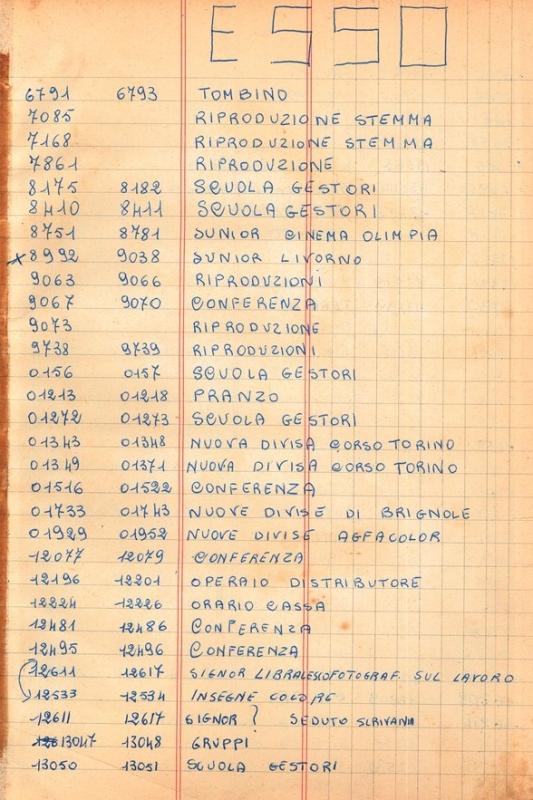 ESSO
6791 6793 TOMBINO
7085 RIPRODUZIONE STEMMA
7168 RIPRODUZIONE STEMMA
7861 RIPRODUZIONE
8175 8182 SCUOLA GESTORI
8410 8411 SCUOLA GESTORI
8751 8781 SUNIOR CINEMA OLIMPIA
x 8992 9038 SUNIOR LIVORNO
9063 9066 RIPRODUZIONI
9067 9070 CONFERENZA
9073 RIPRODUZIONE
9738 9739 RIPRODUZIONI
0156 0157 SCUOLA GESTORI
01213 01218 PRANZO
01272 01273 SCUOLA GESTORI
01343 01348 NUOVA DIVISA CORSO TORINO
01349 01371 NUOVA DIVISA CORSO TORINO
01516 01522 CONFERENZA
01733 01743 NUOVE DIVISE DI BRIGNOLE
01929 01952 NUOVE DIVISE AGFACOLOR
12077 12079 CONFERENZA
12196 12201 OPERAIO DISTRIBUTORE
12224 12226 ORARIO CASSA
12481 12486 CONFERENZA
12495 12496 CONFERENZA
12611 12617 SIGNOR FOTOGRAF. SUL LAVORO
12533 12534 INSEGNE
12611 12617 SIGNOR ? SEDUTO SCRIVANIA
13047 13048 GRUPPI
13050 13051 SCUOLA GESTORI